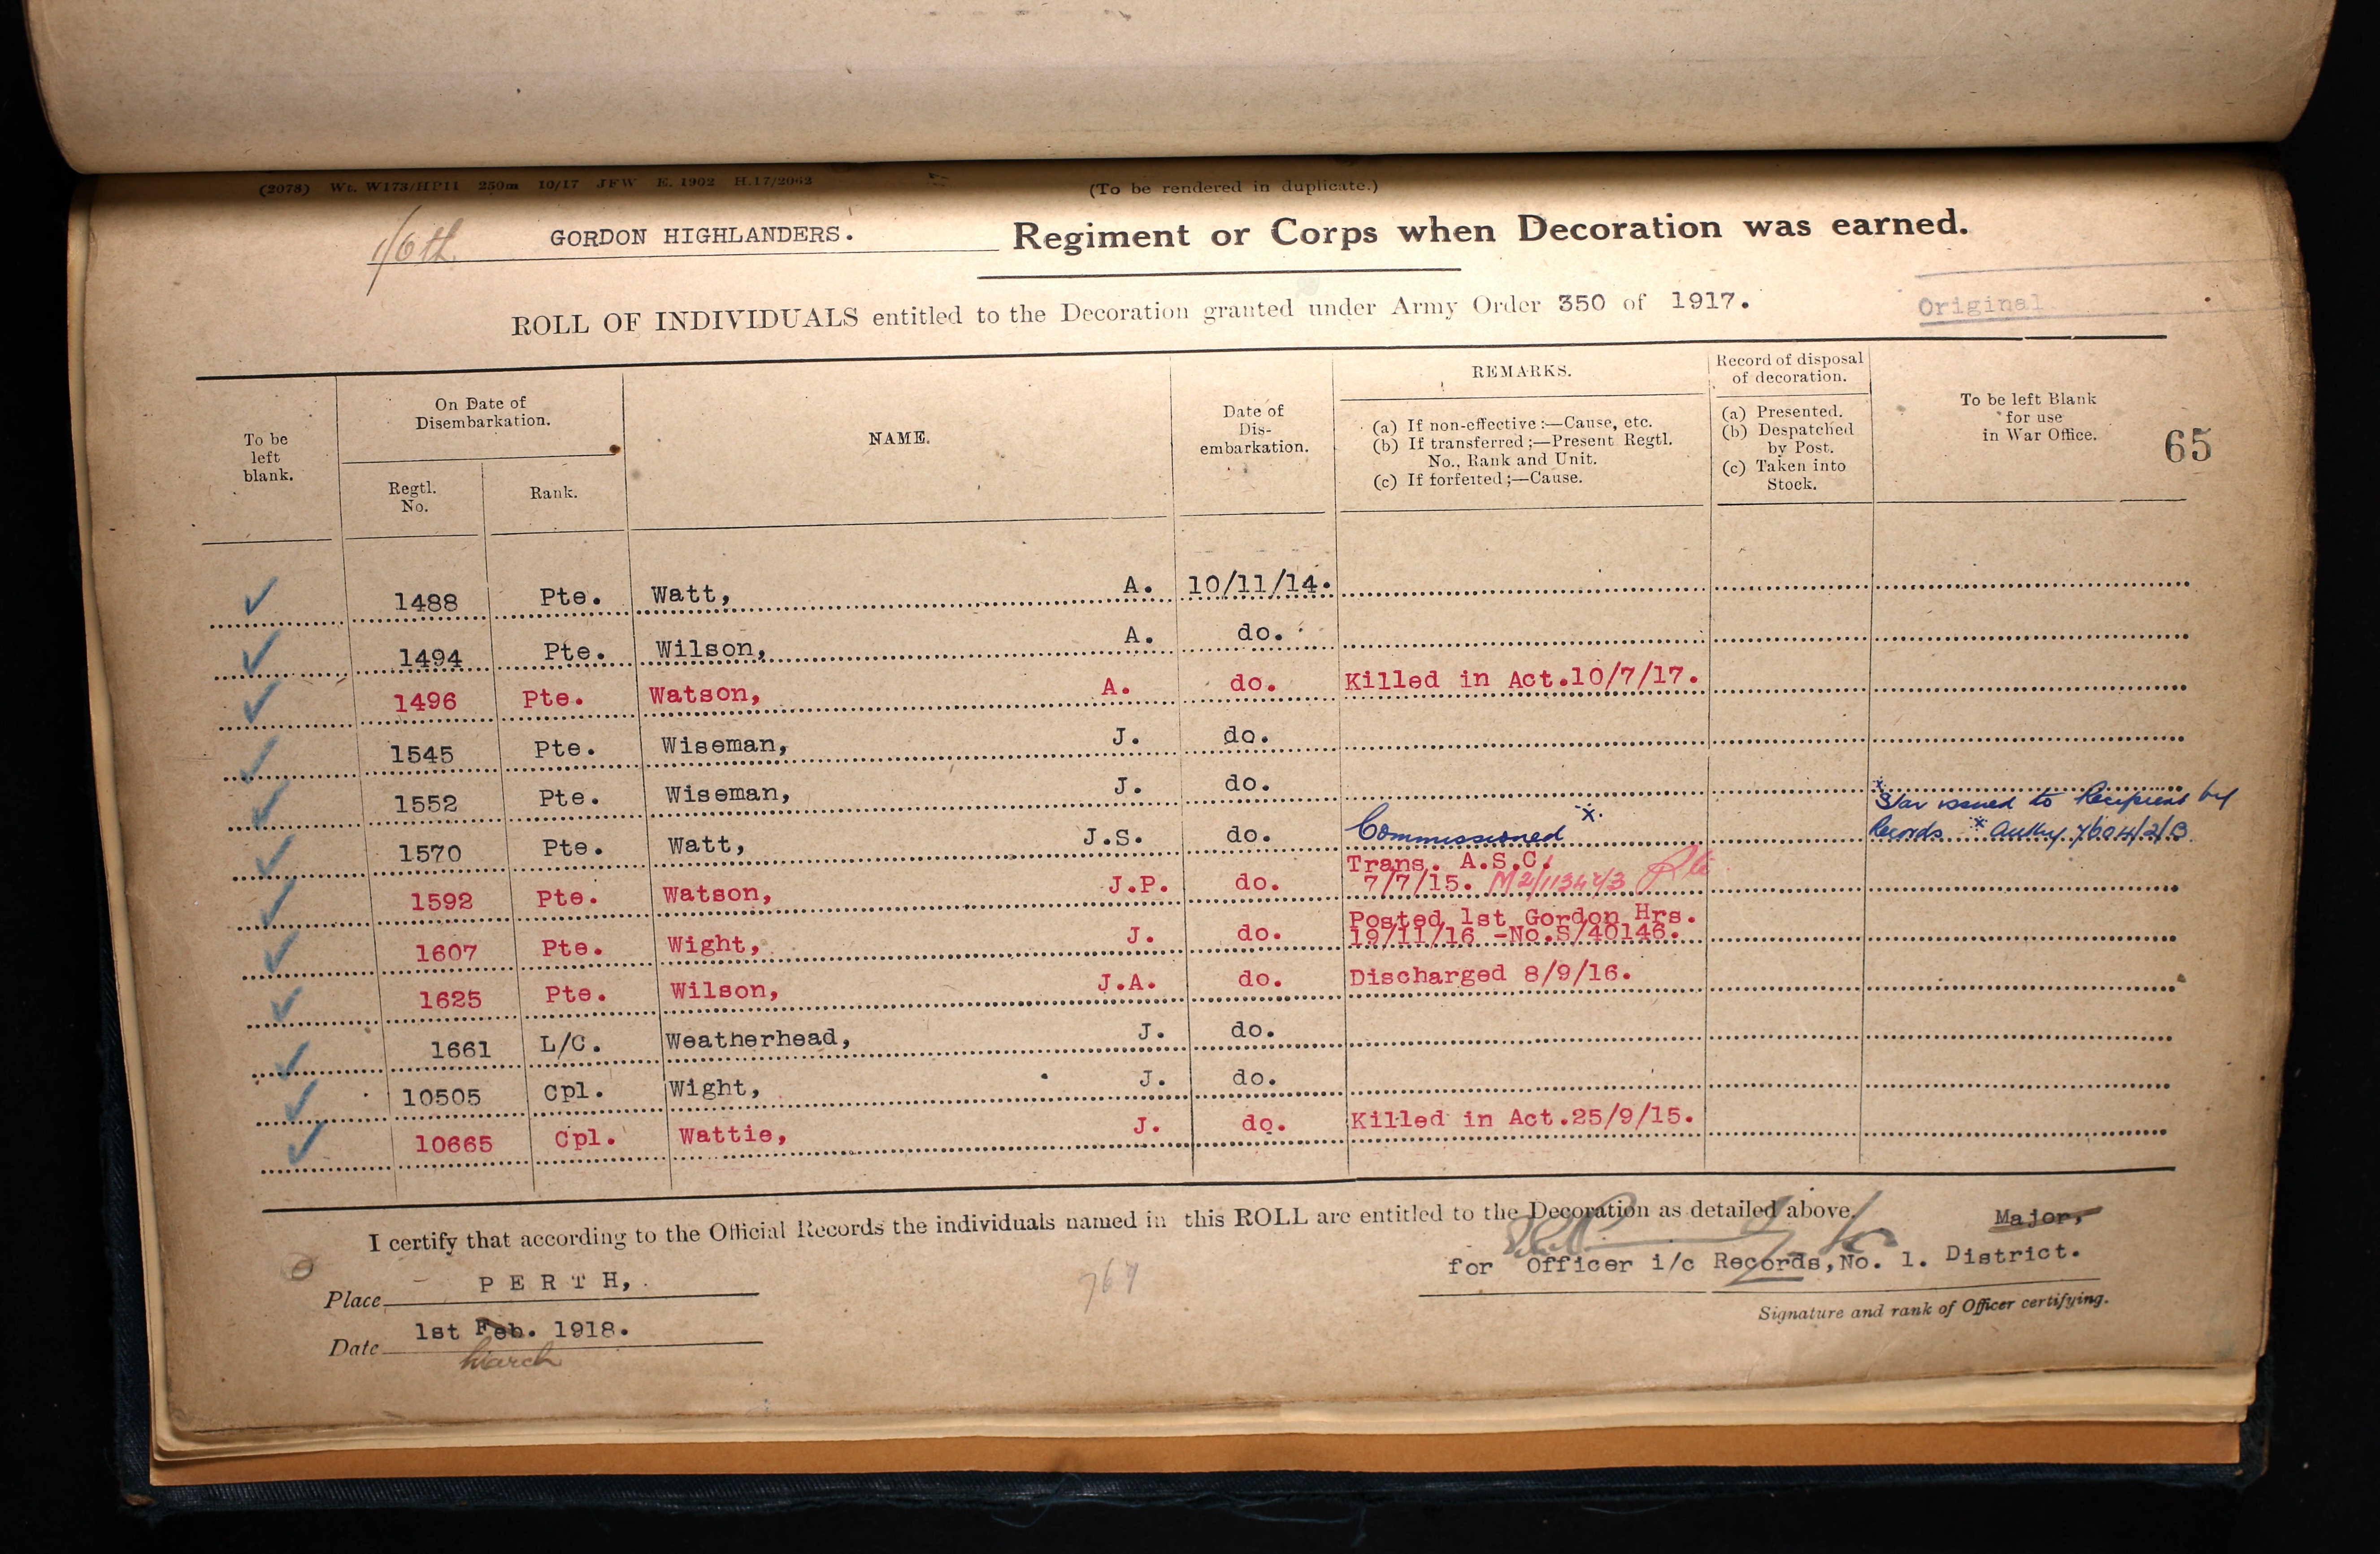 (2078) Wt. W173/HP11 250m 10/17 JFW E. 1902 H.17/2062 (To be rendered in duplicate.)
1/6th GORDON HIGHLANDERS. Regiment or Corps when Decoration was earned.
ROLL OF INDIVIDUALS entitled to the Decoration granted under Army Order 350 of 1917.
Original
To be
left
blank.
On Date of
Disembarkation.
Regtl.
No.
Rank.
NAME.
Date of
Dis-
embarkation.
REMARKS.
(a) If non-effective:—Cause, etc.
(b) If transferred;—Present Regtl.
No., Rank and Unit.
(c) If forfeited;—Cause.
Record of disposal
of decoration.
(a) Presented.
(b) Despatched
by Post.
(c) Taken into
Stock.
To be left Blank
for use
in War Office.
65
1488 Pte. Watt, A. 10/11/14.
1494 Pte. Wilson, A. do.
1496 Pte. Watson, A. do. Killed in Act.10/7/17.
1545 Pte. Wiseman, J. do.
1552 Pte. Wiseman, J. do.
x Star issued to Recipient by
1570 Pte. Watt, J.S. do. Commissioned x. Records x
Trans. A.S.C.
1592 Pte. Watson, J.P. do. 7/7/15. Pte
Posted 1st Gordon Hrs.
1607 Pte. Wight, J. do. 19/11/16 -No.S/40146.
1625 Pte. Wilson, J.A. do. Discharged 8/9/16.
1661 L/C. Weatherhead, J. do.
10505 Cpl. Wight, J. do.
10665 Cpl. Wattie, J. do. Killed in Act.25/9/15.
I certify that according to the Official Records the individuals named in this ROLL are entitled to the Decoration as detailed above.
Major,
for Officer i/c Records, No. 1. District.
Signature and rank of Officer certifying.
Place PERTH,
Date 1st Feb. 1918.
March